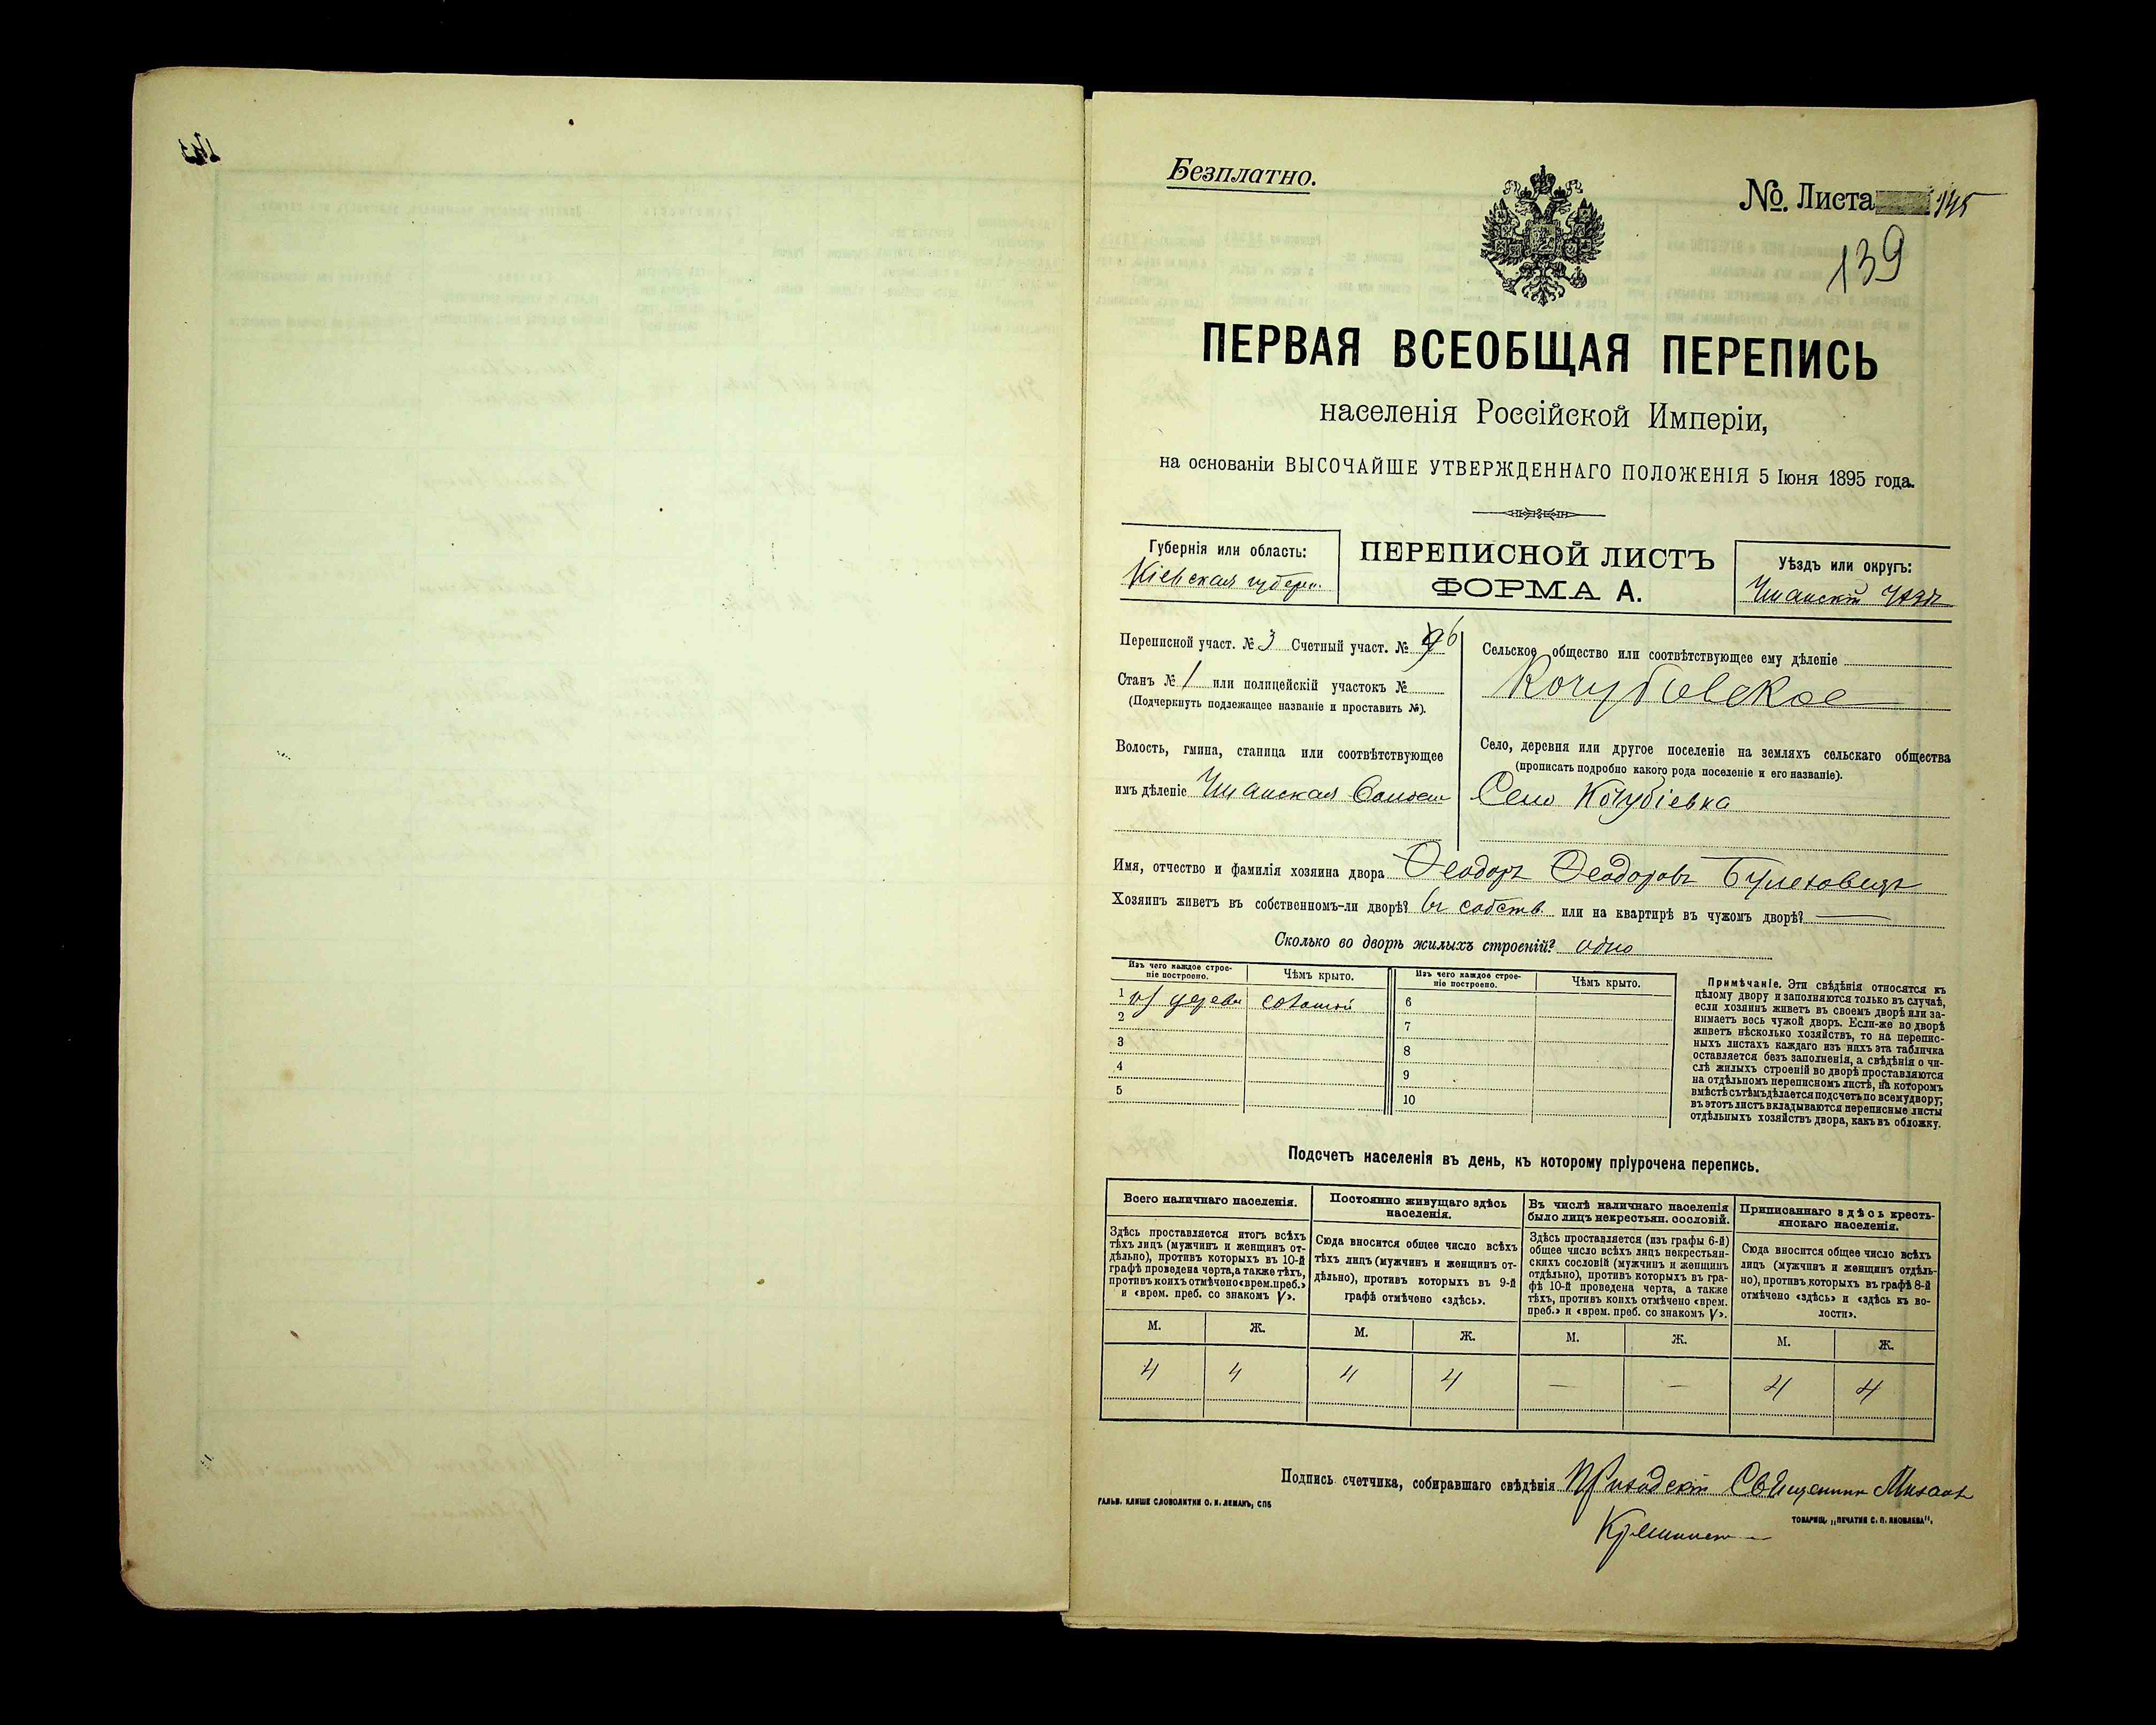 Безплатно.
№. Листа 145
139
ПЕРВАЯ ВСЕОБЩАЯ ПЕРЕПИСЬ
населенія Россійской Имперіи,
на основаніи ВЫСОЧАЙШЕ УТВЕРЖДЕННАГО ПОЛОЖЕНІЯ 5 Іюня 1895 года.
Губернія или область:
Кіевская губерн.
ПЕРЕПИСНОЙ ЛИСТЪ
ФОРМА А.
Уѣздъ или округъ:
Уманскій Уѣздъ
Переписной участ. № 3 Счетный участ. № 6
Станъ № 1 или полицейскій участокъ №
(Подчеркнуть подлежащее названіе и проставить №).
Волость, гмина, станица или соотвѣтствующее
имъ дѣленіе Уманская Волость
Сельское общество или соотвѣтствующее ему дѣленіе
Кочубіевское
Село, деревня или другое поселеніе на земляхъ сельскаго общества
(прописать подробно какого рода поселеніе и его названіе).
Село Кочубіевка
Имя, отчество и фамилія хозяина двора Ѳеодоръ Ѳеодоровъ
Хозяинъ живетъ въ собственномъ-ли дворѣ? въ собств. или на квартирѣ въ чужомъ дворѣ? —
Сколько во дворѣ жилыхъ строеній? одно
Изъ чего каждое строе-
ніе построено.
Чѣмъ крыто.
Изъ чего каждое строе-
ніе построено.
Чѣмъ крыто.
1 из дерева соломой
2
3
4
5
6
7
8
9
10
Примѣчаніе. Эти свѣдѣнія относятся къ
цѣлому двору и заполняются только въ случаѣ,
если хозяинъ живетъ въ своемъ дворѣ или за-
нимаетъ весь чужой дворъ. Если-же во дворѣ
живетъ нѣсколько хозяйствъ, то на перепис-
ныхъ листахъ каждаго изъ нихъ эта табличка
оставляется безъ заполненія, а свѣдѣнія о чи-
слѣ жилыхъ строеній во дворѣ проставляются
на отдѣльномъ переписномъ листѣ, на которомъ
вмѣстѣ съ тѣмъ дѣлается подсчетъ по всему двору;
въ этотъ листъ вкладываются переписные листы
отдѣльныхъ хозяйствъ двора, какъ въ обложку.
Подсчетъ населенія въ день, къ которому пріурочена перепись.
Всего наличнаго населенія.
Здѣсь проставляется итогъ всѣхъ
тѣхъ лицъ (мужчинъ и женщинъ от-
дѣльно), противъ которыхъ въ 10-й
графѣ проведена черта, а также тѣхъ,
противъ коихъ отмѣчено «врем. преб.»
и «врем. преб. со знакомъ V».
Постоянно живущаго здѣсь
населенія.
Сюда вносится общее число всѣхъ
тѣхъ лицъ (мужчинъ и женщинъ от-
дѣльно), противъ которыхъ въ 9-й
графѣ отмѣчено «здѣсь».
Въ числѣ наличнаго населенія
было лицъ некрестьян. сословій.
Здѣсь проставляется (изъ графы 6-й)
общее число всѣхъ лицъ некрестьян-
скихъ сословій (мужчинъ и женщинъ
отдѣльно), противъ которыхъ въ гра-
фѣ 10-й проведена черта, а также
тѣхъ, противъ коихъ отмѣчено «врем.
преб.» и «врем. преб. со знакомъ V».
Приписаннаго здѣсь кресть-
янскаго населенія.
Сюда вносится общее число всѣхъ
лицъ (мужчинъ и женщинъ отдѣль-
но), противъ которыхъ въ графѣ 8-й
отмѣчено «здѣсь» и «здѣсь къ во-
лости».
М. Ж. М. Ж. М. Ж. М. Ж.
4 4 4 4 — — 4 4
Подпись счетчика, собиравшаго свѣдѣнія Приходскій Священникъ Михаилъ
ГАЛЬВ. КЛИШЕ СЛОВОЛИТНИ О. И. ЛЕМАНЪ, СПБ
ТОВАРИЩ. „ПЕЧАТНЯ С. П. ЯКОВЛЕВА".